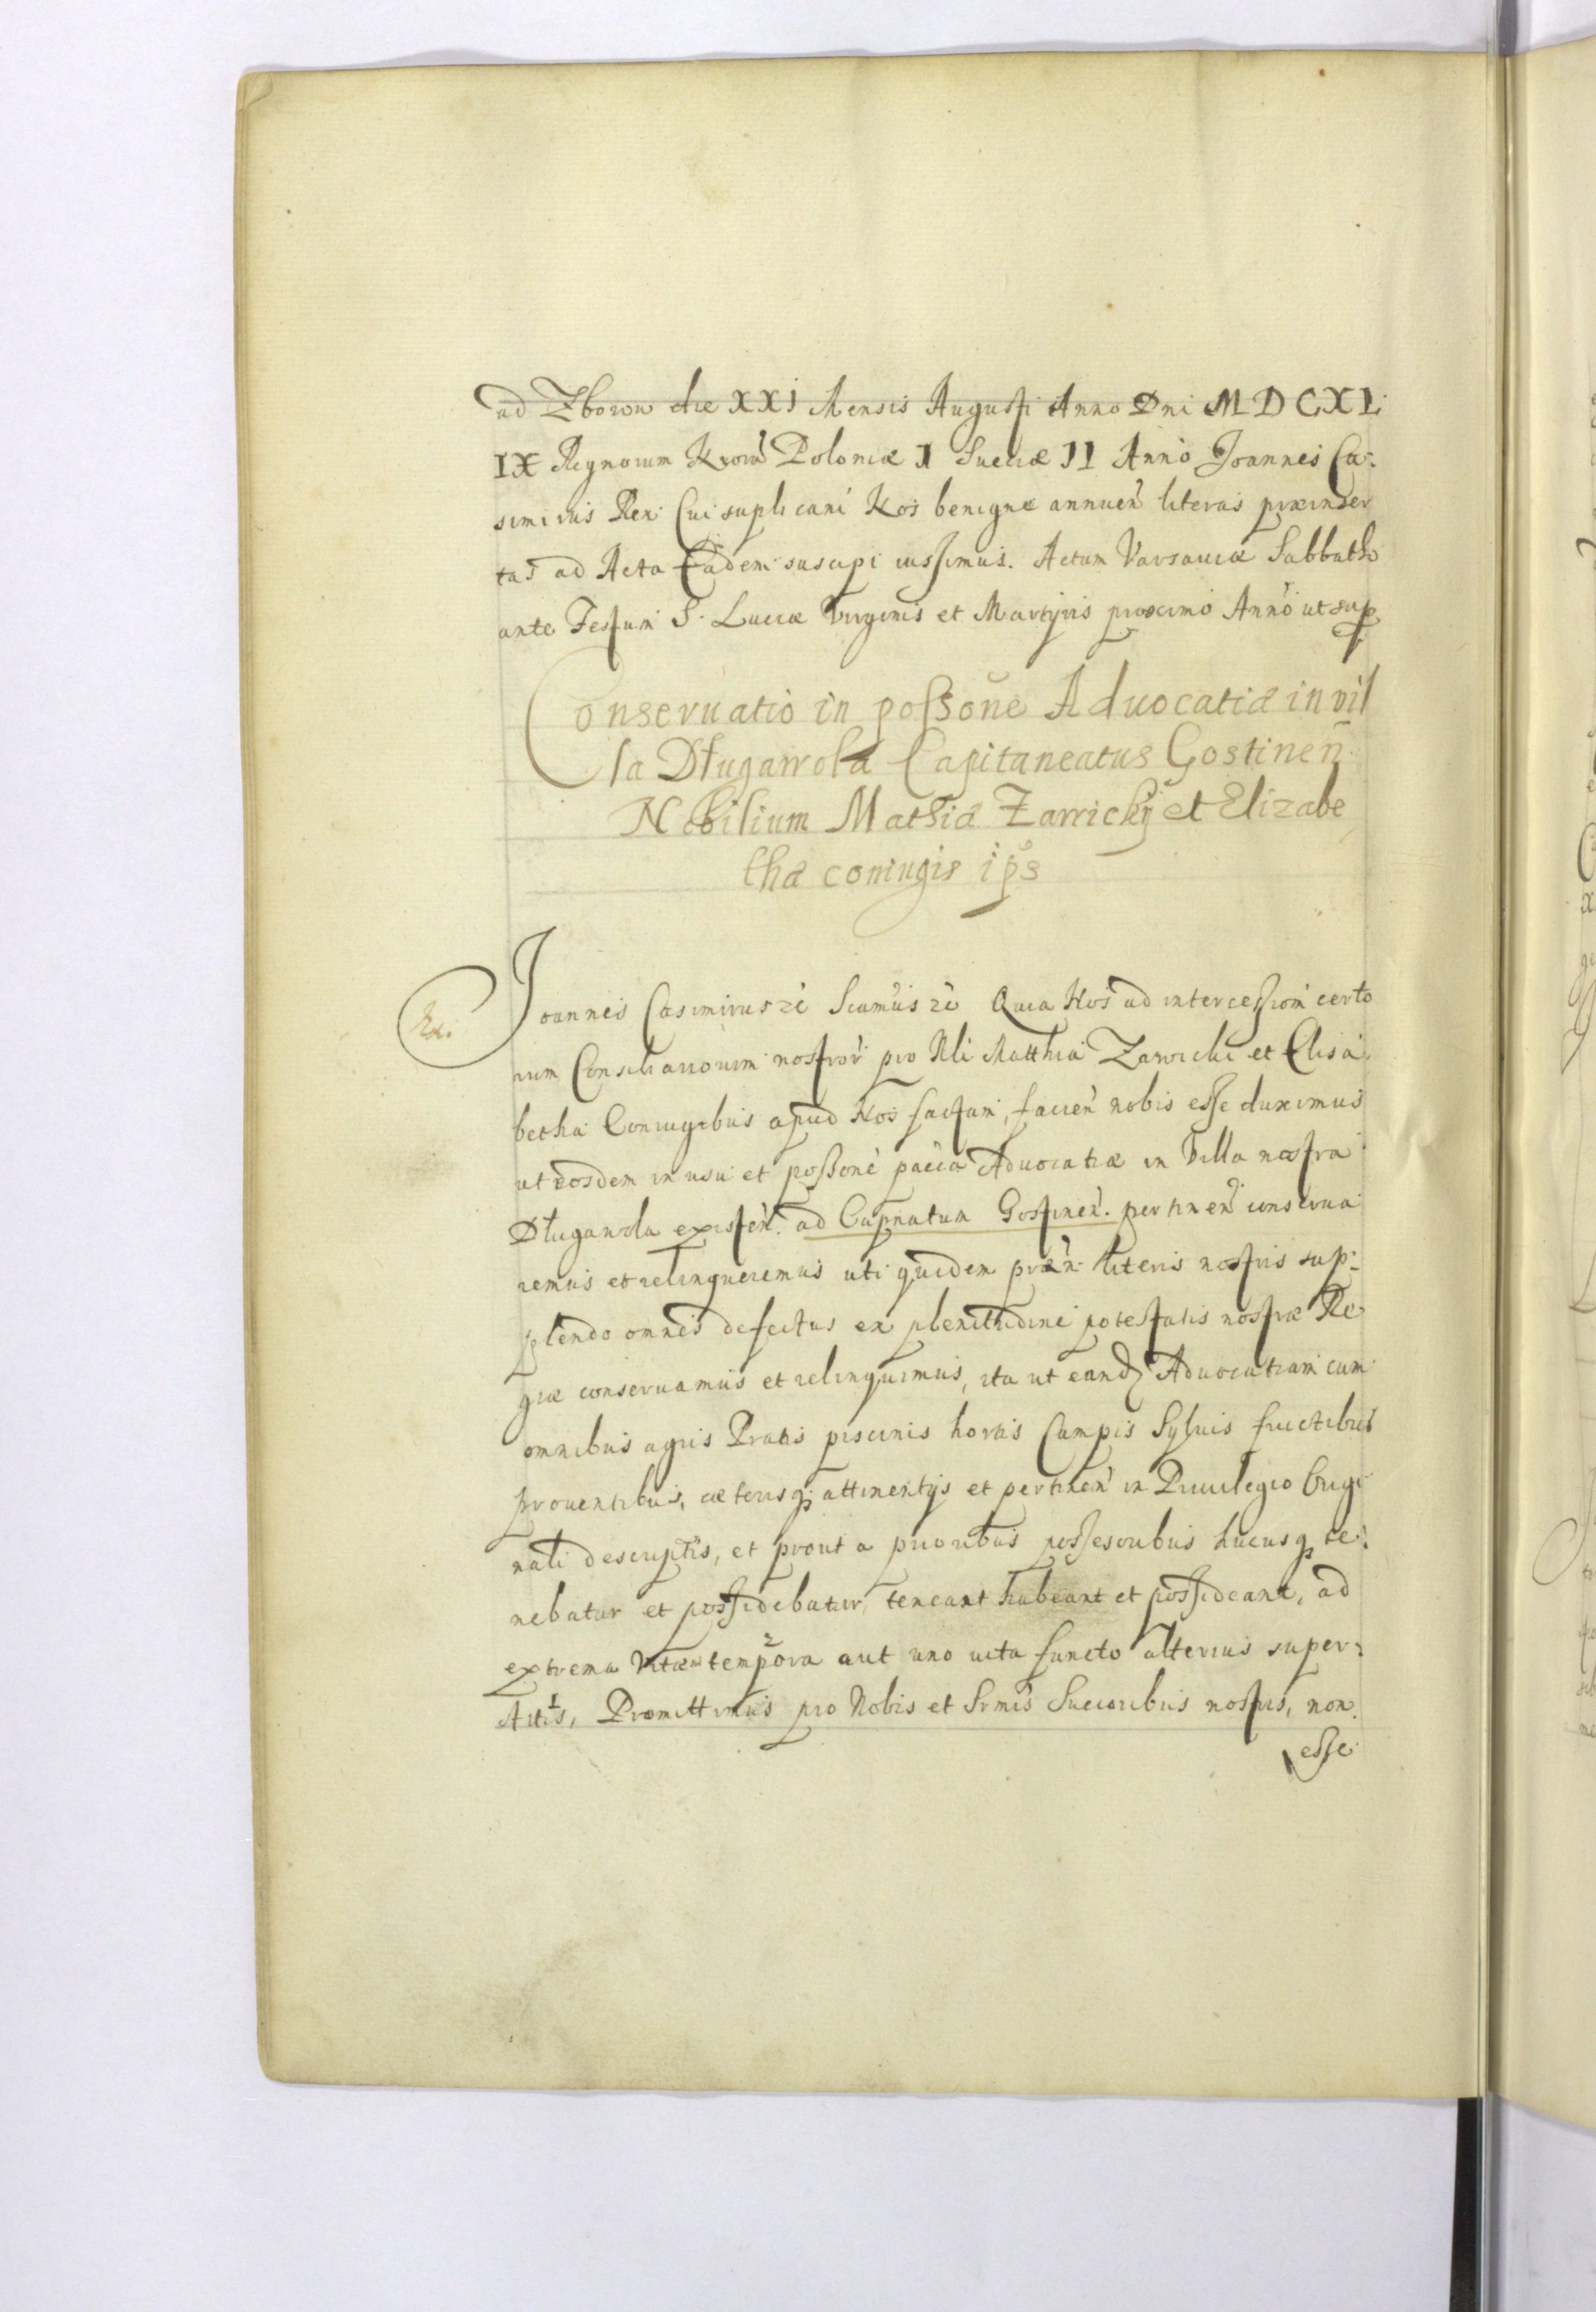 ad Zborow die XXI Mensis Augusti Anno Dni MDCXL
IX Regnorum Nrorū Poloniæ I Sueciæ II Anno Joannes Ca:
simirus Rex Cui suplicani Nos benigne annuen̄ literas præinser
tas ad Acta Eadem suscipi iussimus. Actum Varsauiæ Sabbatho
ante Festum S. Luciæ Virginis et Martyris proximo Anno ut sup
Conseruatio in possone Aduocatiæ in vil
la Długawola Capitaneatus Gostinen̄
Nobilium Mathiæ Zawickij et Elizabe
thæ coniugis ips
Joannes Casimirus zc Scamūs zc Quia Nos ad intercession certo
rum Consiliariorum nostror pro Nli Matthia Zawicki et Elisa
betha Coniugibus apud Nos factam, facien nobis esse duximus
ut eosdem in usu et possone Aduocatiæ in Villa nostra
Długawola existen. ad Capnatum Gostinen. pertinen conserua
remus et relinqueremus uti quidem præn literis nostris sup:
plendo omnes defectus ex plenitudine potestatis nostræ Re
giæ conseruamus et relinquimus, ita ut eandz Aduocatiam cum
omnibus agris Pratis piscinis hortis Campis Syluis fructibus
prouentibus, cæterisqz attinentijs et pertinen in Priuilegio Origi
nali descriptis, et prout a prioribus possesoribus hucusqz te:
nebatur et possidebatur teneant habeant et possideant, ad
extrema Vitæ tempora aut uno uita functo alterius super:
stitis, Promittimus pro Nobis et Srmis Succoribus nostris, non
esse